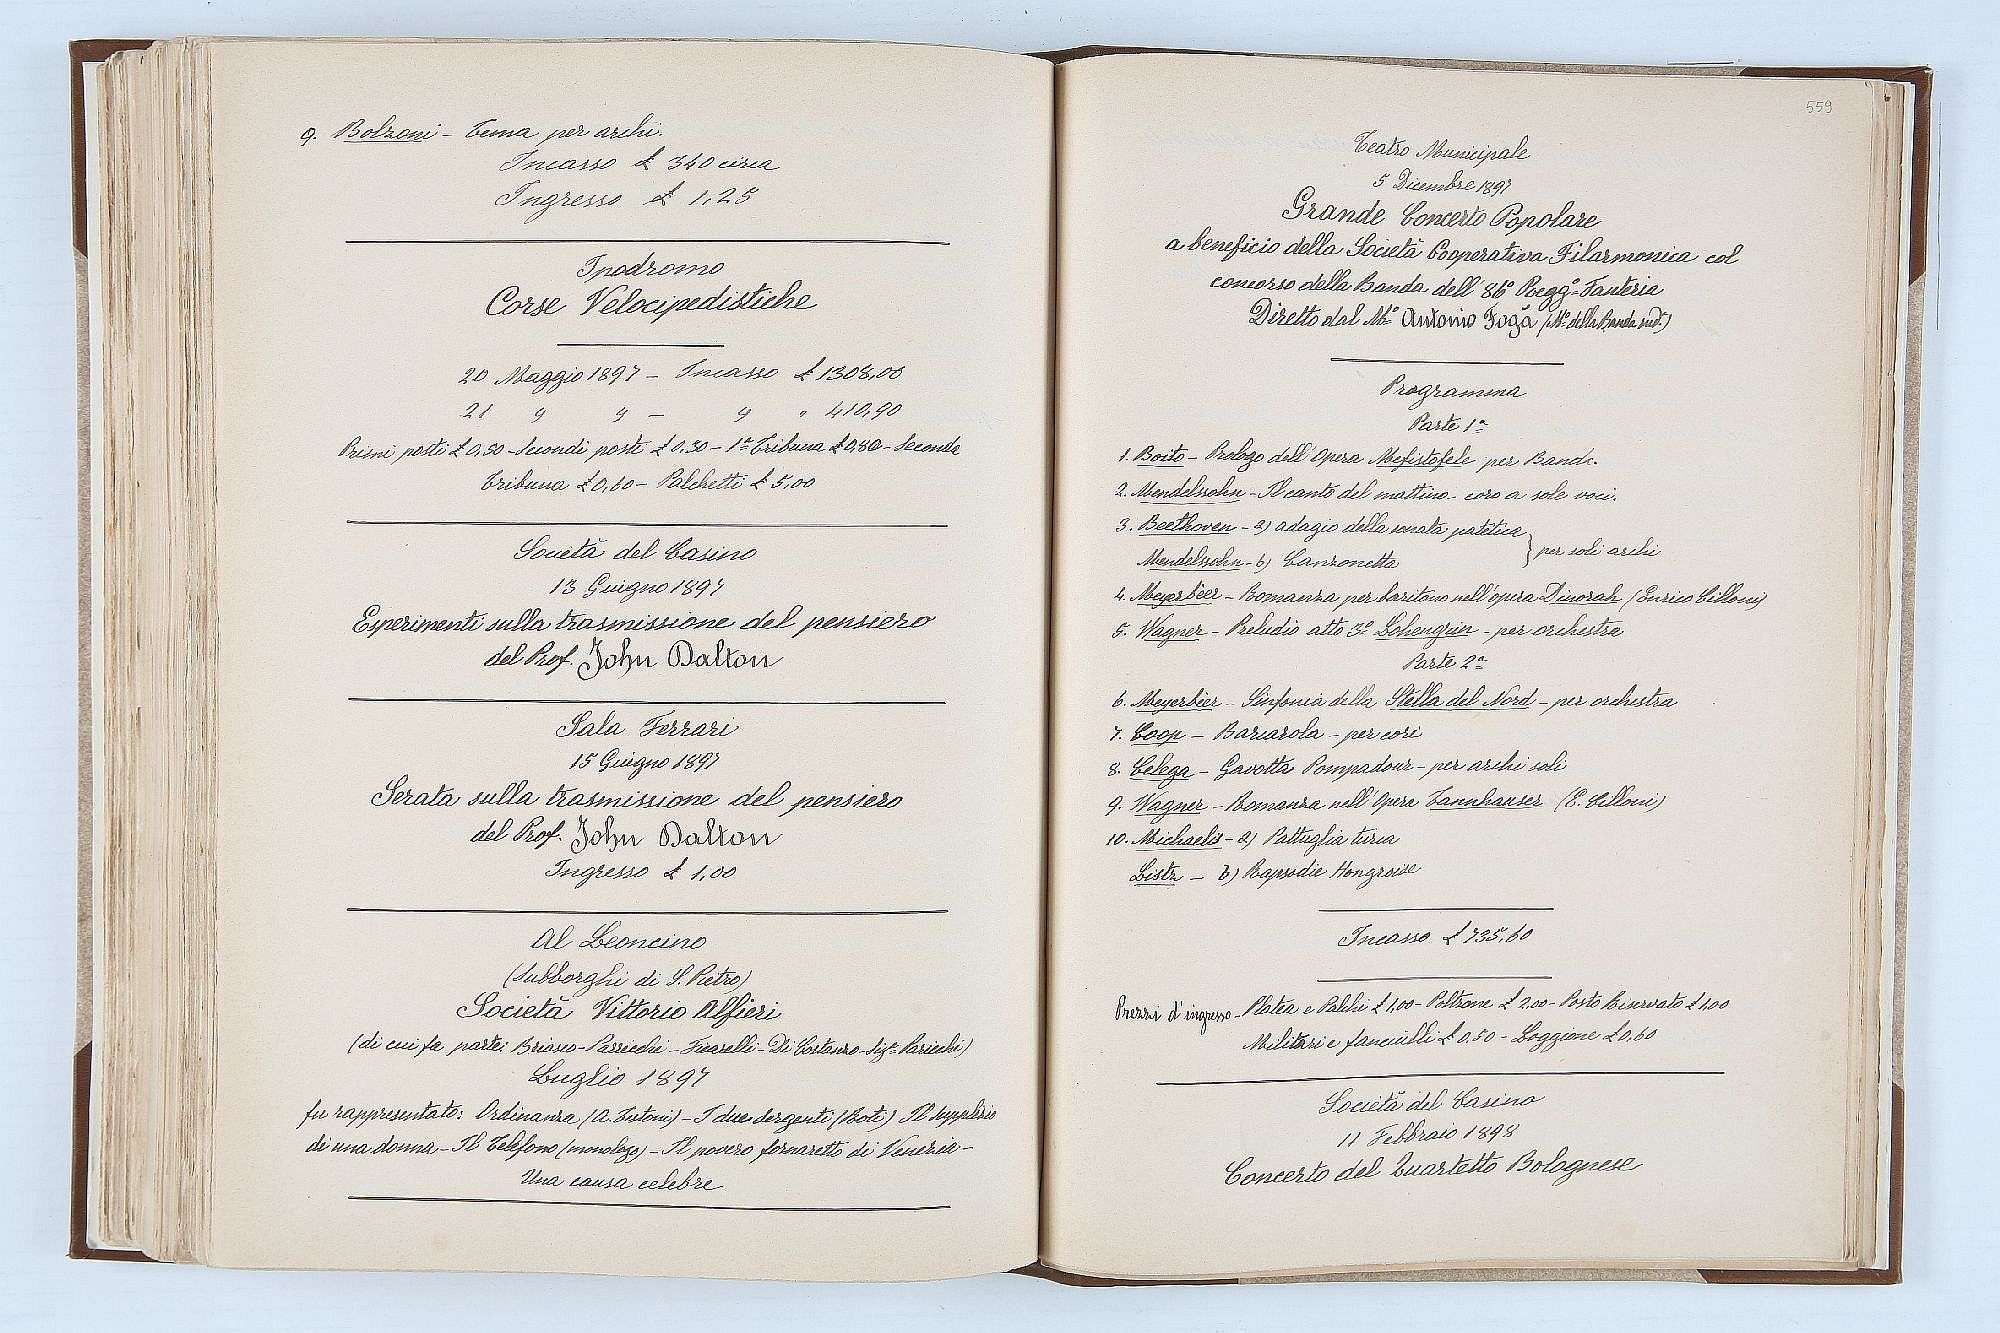 9. Bolzoni - Tema per archi.
Incasso £ 340 circa
Ingresso £ 1,25
Ipodromo
Corse Velocipedistiche
20 Maggio 1897 - Incasso £ 1308,00
21 " " - " " 410,90
Primi posti £ 0,50 - Secondi posti £ 0,30 - 1ª Tribuna £ 0,80 - Seconda
Tribuna £ 0,60 - Palchetti £ 5,00
Società del Casino
13 Giugno 1897
Esperimenti sulla trasmissione del pensiero
del Prof. John Dalton
Sala Ferrari
15 Giugno 1897
Serata sulla trasmissione del pensiero
del Prof. John Dalton
Ingresso £ 1,00
Al Leoncino
(Subborghi di S. Pietro)
Società Vittorio Alfieri
(di cui fa parte: Briosco - - Di Costanzo - )
Luglio 1897
fu rappresentato: Ordinanza (A. Testoni) - I due sergenti (Roti) Il supplizio
di una donna - Il Telefono (monologo) - Il povero fornaretto di Venezia -
Una causa celebre
559
Teatro Municipale
5 Dicembre 1897
Grande Concerto Popolare
a beneficio della Società Cooperativa Filarmonica col
concorso della Banda dell' 86º Regg.º Fanteria
Diretto dal Mº Antonio Fogà (Mº della Banda sud.)
Programma
Parte 1ª
1. Boito - Prologo dell'Opera Mefistofele per Banda.
2. Mendelssohn - Il canto del mattino - coro a sole voci.
3. Beethoven - a) adagio della sonata patetica
Mendelssohn - b) Canzonetta } per soli archi
4. Meyerbèer - Romanza per baritono nell'opera Dinorah (Enrico Cilloni)
5. Wagner - Preludio atto 3º Lohengrin - per orchestra
Parte 2ª
6. Meyerbèer - Sinfonia della Stella del Nord - per orchestra
7. Coop - Barcarola - per cori
8. Celega - Gavotta Pompadour - per archi soli
9. Wagner - Romanza nell'Opera Tannhauser (E. Cilloni)
10. Michaelis - a) Pattuglia turca
Listz - b) Rapsodie Hongroise
Incasso £ 735,60
Prezzi d'ingresso - Platea e Palchi £ 1,00 - Poltrone £ 2,00 - Posto Riservato £ 1,00
Militari e fanciulli £ 0,50 - Loggione £ 0,60
Società del Casino
11 Febbraio 1898
Concerto del Quartetto Bolognese